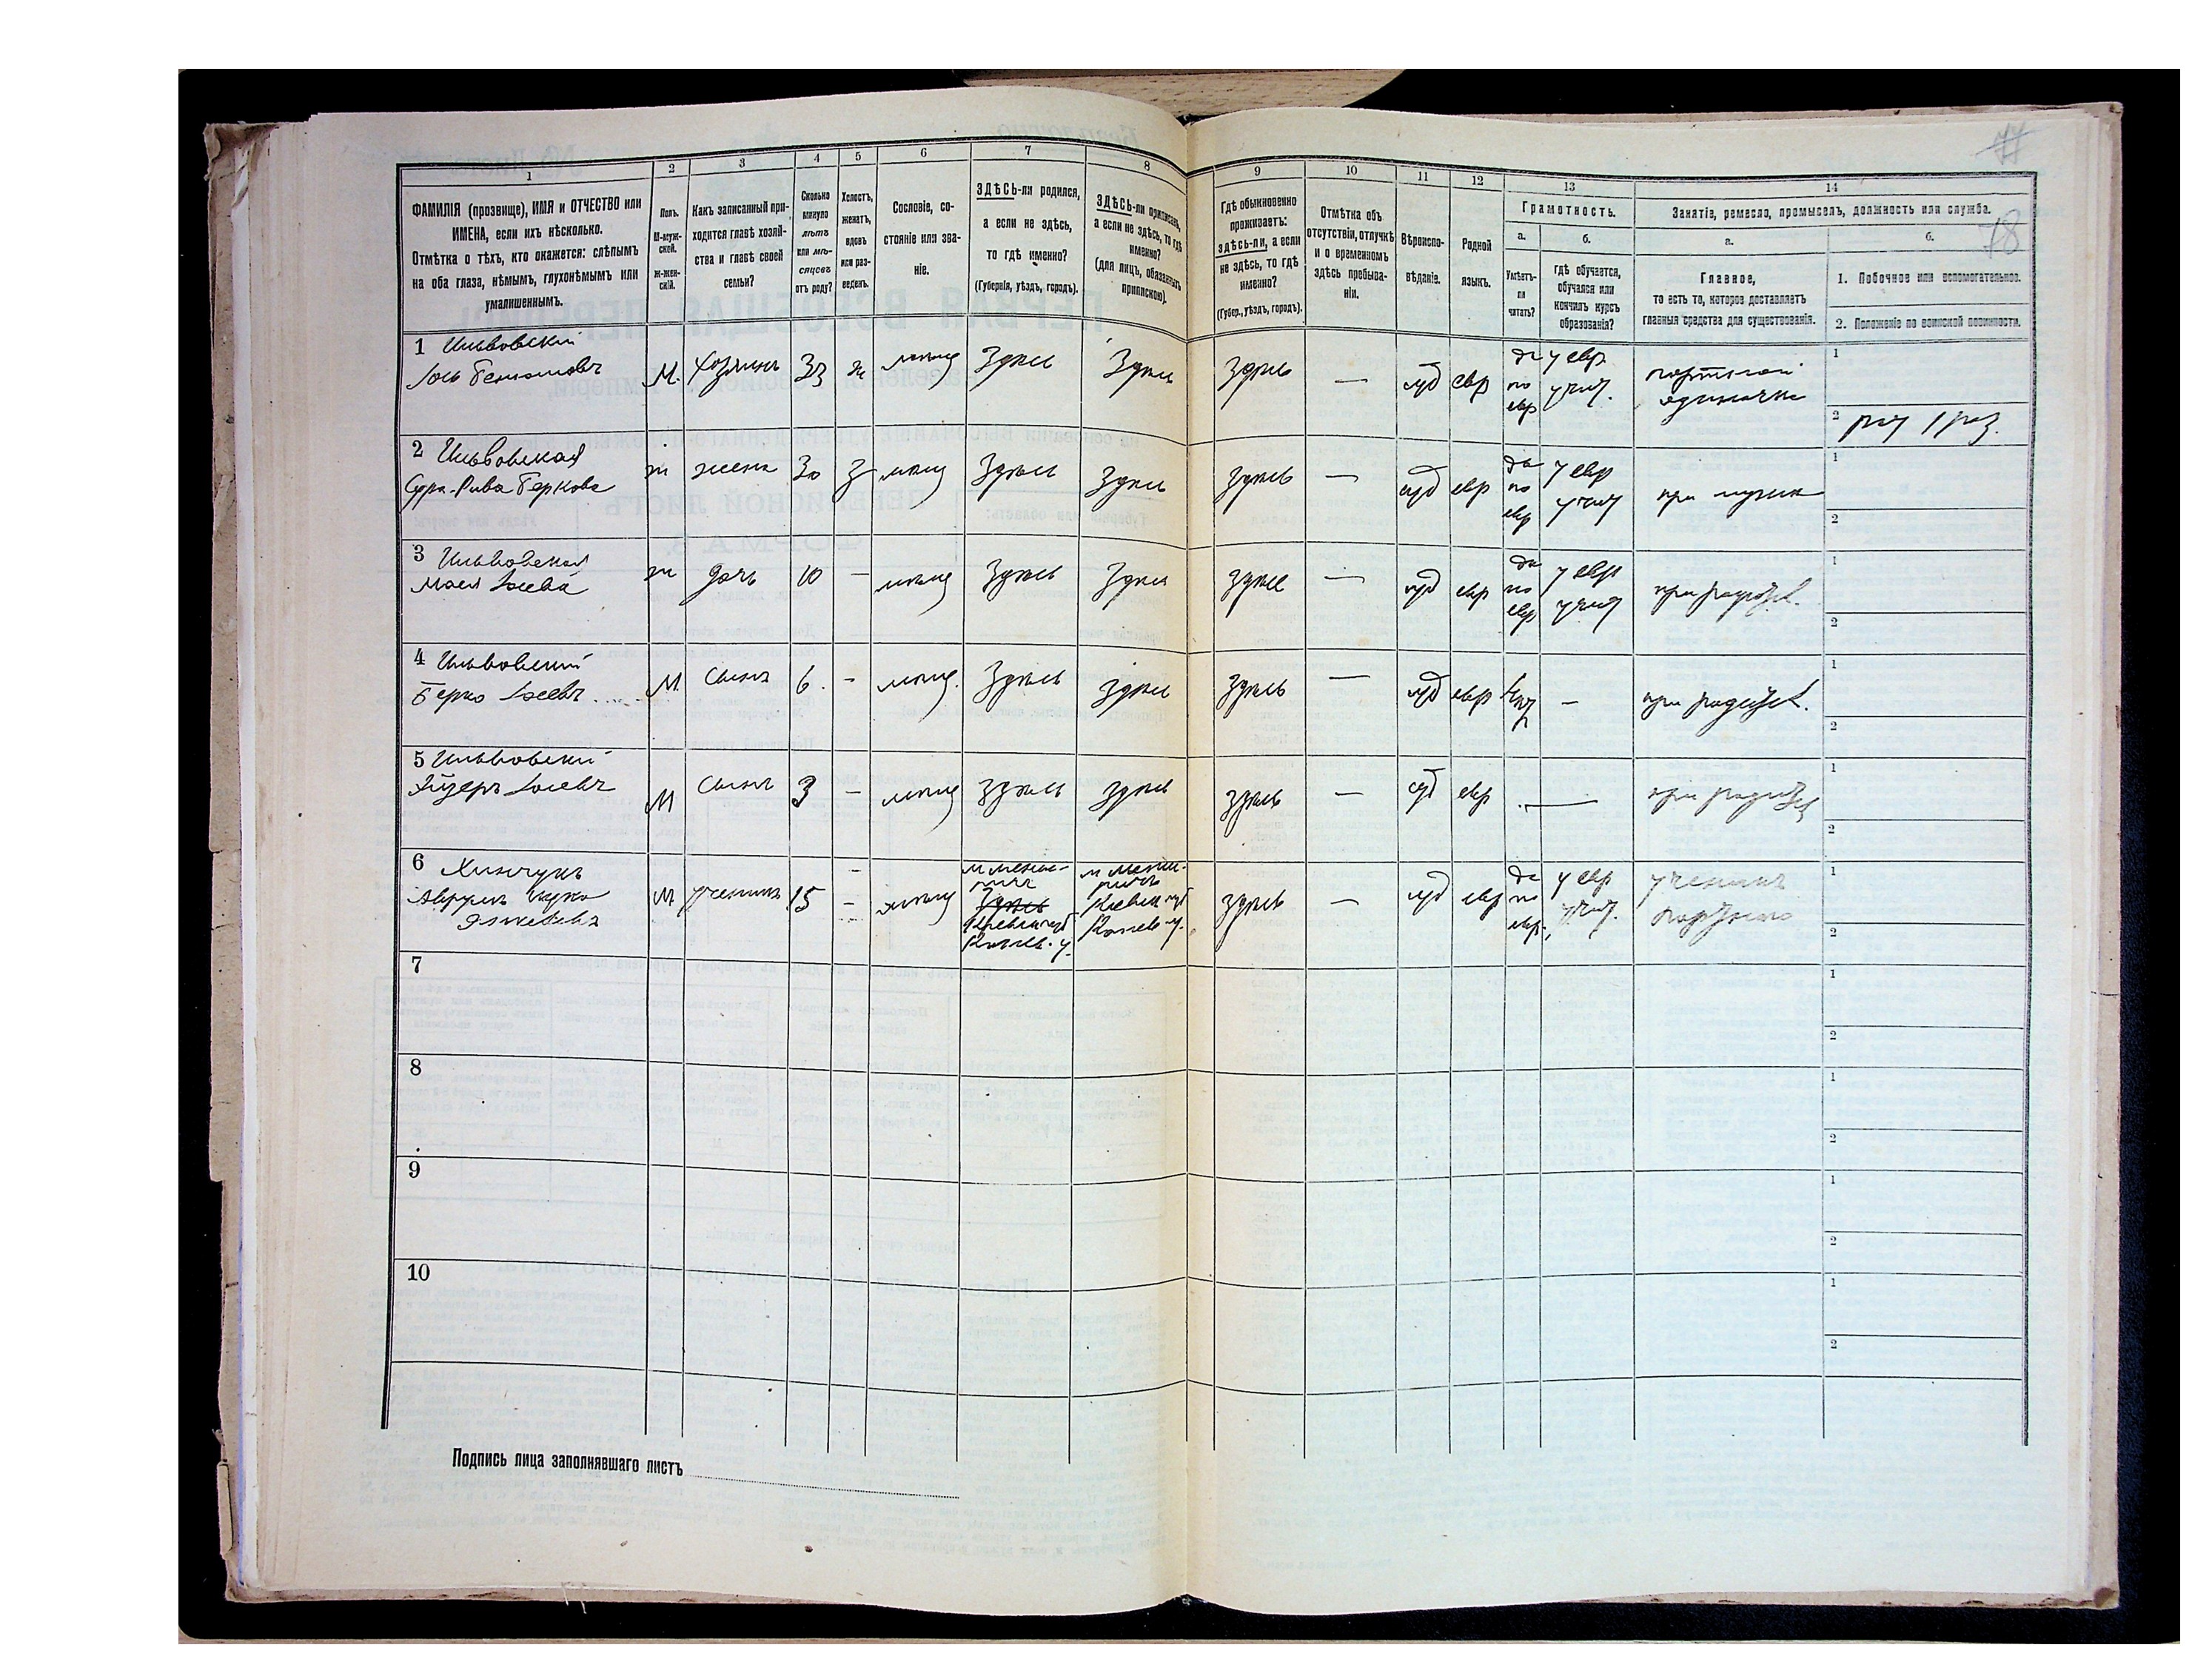 77
78
1
2
3
4
5
6
7
8
9
10
11
12
13
14
ФАМИЛІЯ (прозвище), ИМЯ и ОТЧЕСТВО или
ИМЕНА, если ихъ нѣсколько.
Отмѣтка о тѣхъ, кто окажется: слѣпымъ
на оба глаза, нѣмымъ, глухонѣмымъ или
умалишеннымъ.
Полъ.
М-муж-
ской.
Ж-жен-
скій.
Какъ записанный при-
ходится главѣ хозяй-
ства и главѣ своей
семьи?
Сколько
минуло
лѣтъ
или мѣ-
сяцевъ
отъ роду?
Холостъ,
женатъ,
вдовъ
или раз-
веденъ.
Сословіе, со-
стояніе или зва-
ніе.
ЗДѢСЬ-ли родился,
а если не здѣсь,
то гдѣ именно?
(Губернія, уѣздъ, городъ).
ЗДѢСЬ-ли приписанъ,
а если не здѣсь, то гдѣ
именно?
(для лицъ, обязанныхъ
припискою).
Гдѣ обыкновенно
проживаетъ:
здѣсь-ли, а если
не здѣсь, то гдѣ
именно?
(Губер., уѣздъ, городъ).
Отмѣтка объ
отсутствіи, отлучкѣ
и о временномъ
здѣсь пребыва-
ніи.
Вѣроиспо-
вѣданіе.
Родной
языкъ.
Грамотность.
а.
б.
Умѣетъ-
ли
читать?
гдѣ обучается,
обучался или
кончилъ курсъ
образованія?
Занятіе, ремесло, промыселъ, должность или служба.
а.
б.
Главное,
то есть то, которое доставляетъ
главныя средства для существованія.
1. Побочное или вспомогательное.
2. Положеніе по воинской повинности.
1
Іось
М. Хозяинъ 33 ж мѣщ Здѣсь Здѣсь Здѣсь — іуд евр
да по евр
у евр учит.
портной
одиночка
1
2 рат 1 раз.
2
Сура-Рива Беркова
ж жена 30 з мѣщ Здѣсь Здѣсь Здѣсь — іуд евр
да по евр
у евр учит
при мужѣ
1
2
3
ж дочь 10 — мѣщ Здѣсь Здѣсь Здѣсь — іуд евр
да по евр
у евр учит
при родител.
1
2
4
Берко Іосевъ
М. сынъ 6. — мѣщ. Здѣсь Здѣсь Здѣсь — іуд евр нѣт —
при родител.
1
2
5
Іосевъ
М сынъ 3 — мѣщ Здѣсь Здѣсь Здѣсь — іуд евр —
при родител
1
2
6 Хинчукъ
М ученикъ 15 — мѣщ
Здѣсь
Кіевск губ
Канев. у.
Кіевск губ
Канев у.
Здѣсь — іуд евр
да по евр.
у евр учит.
ученикъ
портного
1
2
7
1
2
8
1
2
9
1
2
10
1
2
Подпись лица заполнявшаго листъ